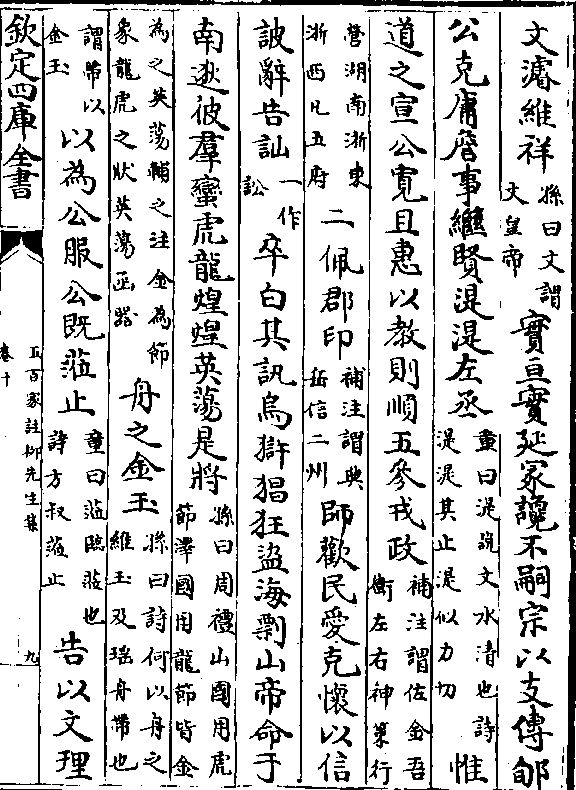 文濬維祥孫曰文謂文皇帝實亘實延冢讒不嗣宗以支傳郇
公克庸詹事繼賢湜湜左丞童曰湜說文水清也詩湜湜其止湜似力切惟
道之宣公寬且惠以教則順五參戎政補注謂佐金吾衛左右神策行
營湖南浙東浙西凡五府二佩郡印補注謂典岳信二州師歡民愛克懷以信
詖辭告訕一作訟卒白其訊烏滸猖狂盜海剽山帝命于
南逖彼羣蠻虎龍煌煌英蕩是將孫曰周禮山國用虎節澤國用龍節皆金
為之英蕩輔之注金為節象龍虎之狀英蕩函器舟之金玉孫曰詩何以舟之維玉及瑤舟帶也
謂帶以金玉以為公服公既蒞止童曰蒞臨蒞也詩方叔蒞止告以文理
欽定四庫全書
五百家註柳先生集
卷十
九